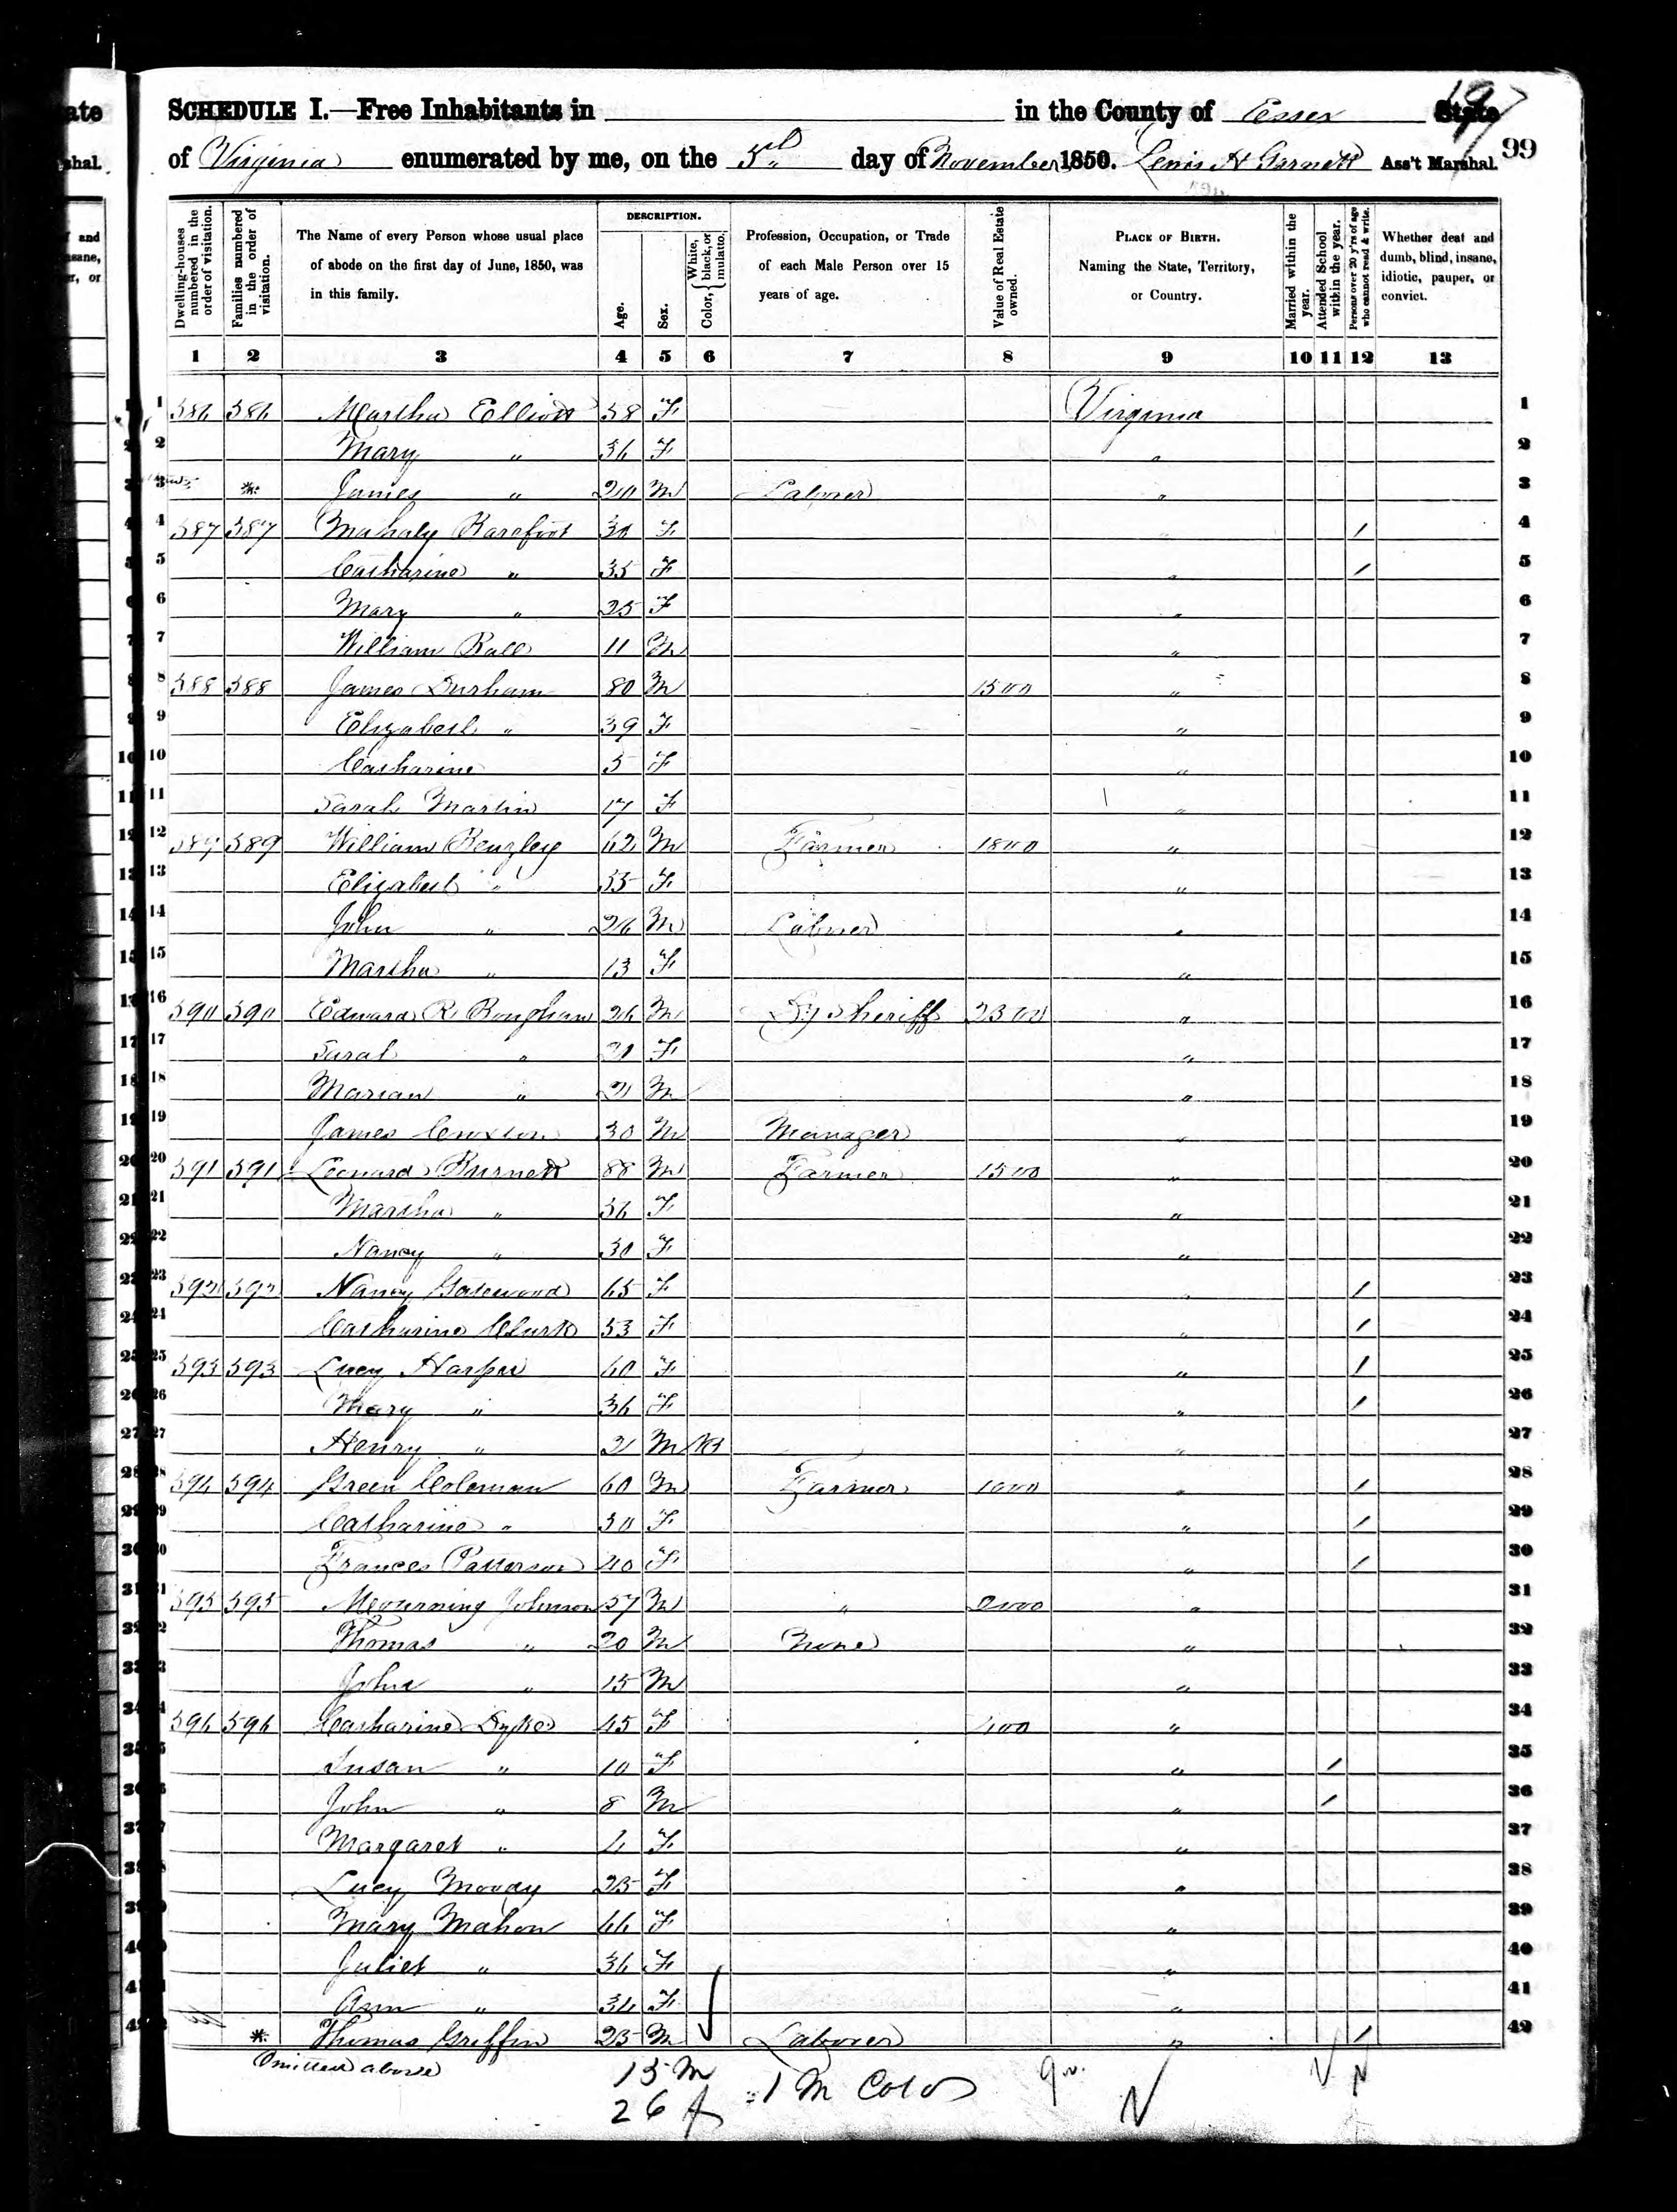 197
SCHEDULE I.—Free Inhabitants in in the County of Essex State
of Virginia enumerated by me, on the 5th day of November 1850. Lewis H Garnett Ass't Marshal. 99
Dwelling-houses numbered in the order of visitation.
Families numbered in the order of visitation.
The Name of every Person whose usual place of abode on the first day of June, 1850, was in this family.
DESCRIPTION.
Age.
Sex.
Color, White, black, or mulatto.
Profession, Occupation, or Trade of each Male Person over 15 years of age.
Value of Real Estate owned.
PLACE OF BIRTH. Naming the State, Territory, or Country.
Married within the year.
Attended School within the year.
Persons over 20 y'rs of age who cannot read & write.
Whether deaf and dumb, blind, insane, idiotic, pauper, or convict.
1 2 3 4 5 6 7 8 9 10 11 12 13
1 586 586 Martha Elliott 58 F Virginia 1
2 Mary " 36 F " 2
3 * James " 20 M Laborer " 3
4 587 587 Mahaly Barefoot 30 F " / 4
5 Catharine " 35 F " / 5
6 Mary " 25 F " 6
7 William Ball 11 M " 7
8 588 588 James Durham 80 M 1500 " 8
9 Elizabeth " 39 F " 9
10 Catharine 5 F " 10
11 Sarah Martin 17 F " 11
12 589 589 William Benzley 62 M Farmer 1800 " 12
13 Elizabeth " 55 F " 13
14 John " 26 M Laborer " 14
15 Martha " 13 F " 15
16 590 590 Edward R Boughan 26 M Dy Sheriff 2300 " 16
17 Sarah " 21 F " 17
18 Marian " 2 M " 18
19 James Croxton 30 M Manager " 19
20 591 591 Leonard Burnett 88 M Farmer 1500 " 20
21 Martha " 36 F " 21
22 Nancy " 30 F " 22
23 592 592 Nancy Gatewood 65 F " / 23
24 Catharine Clark 53 F " / 24
25 593 593 Lucy Harper 60 F " / 25
26 Mary " 36 F " / 26
27 Henry " 21 M " 27
28 594 594 Green Coleman 60 M Farmer 1000 " / 28
29 Catharine " 30 F " / 29
30 Frances Patterson 40 F " / 30
31 595 595 Mourning Johnson 57 M " 2000 " 31
32 Thomas " 20 M None " 32
33 John " 15 M " 33
34 596 596 Catharine Dyke 45 F 400 " 34
35 Susan " 10 F " / 35
36 John " 8 M " / 36
37 Margaret " 4 F " 37
38 Lucy Moody 25 F " 38
39 Mary Mahon 46 F " 39
40 Juliet " 36 F " 40
41 Ann " 34 F " 41
42 * Thomas Griffin 25 M Laborer " / 42
Omitted above
15 M
26 f 1 M Cold